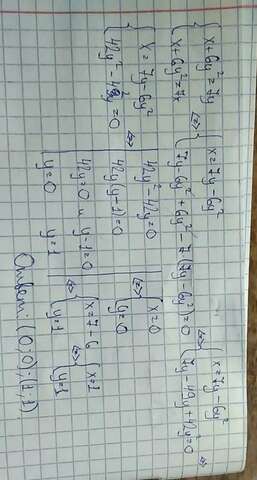 { x + 6y² = 7y
{ x + 6y² = 7x <=>
{ x = 7y - 6y²
{ 7y - 6y² + 6y² - 7(7y - 6y²) = 0 <=>
{ x = 7y - 6y²
{ 7y - 49y + 42y² = 0 <=>
{ x = 7y - 6y²
{ 42y² - 42y = 0 <=>
42y² - 42y = 0
42y(y - 1) = 0
42y = 0 и y - 1 = 0
y = 0 y = 1
{ x = 0
{ y = 0 <=>
{ x = 7 - 6
{ y = 1 <=>
{ x = 1
{ y = 1
Ответ: (0; 0); (1; 1).